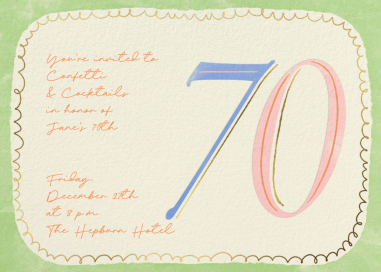 You're invited to
Confetti
& Cocktails
in honor of
Jane's 70th
70
Friday,
December 27th
at 8 p.m.
The Hepburn Hotel